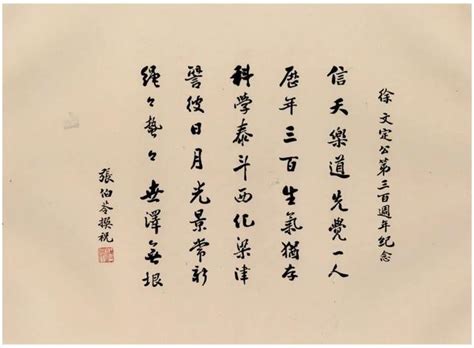 徐文定公第三百週年紀念
信天樂道先覺一人
歷年三百生氣猶存
科學泰斗西化梁津
譬彼日月光景常新
繩々蟄々世澤無垠
張伯苓撰祝